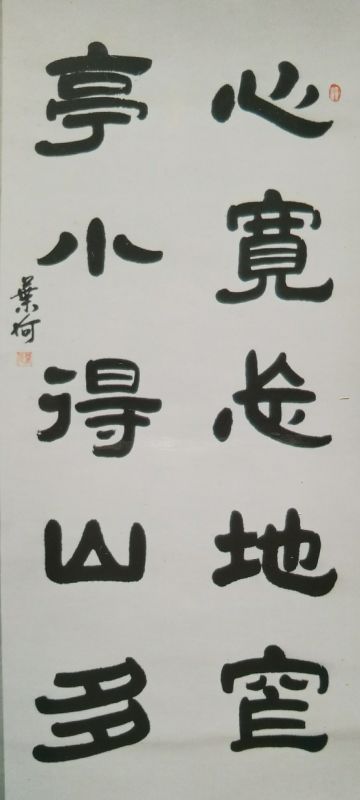 心寬忘地窄
亭小得山多
葉何